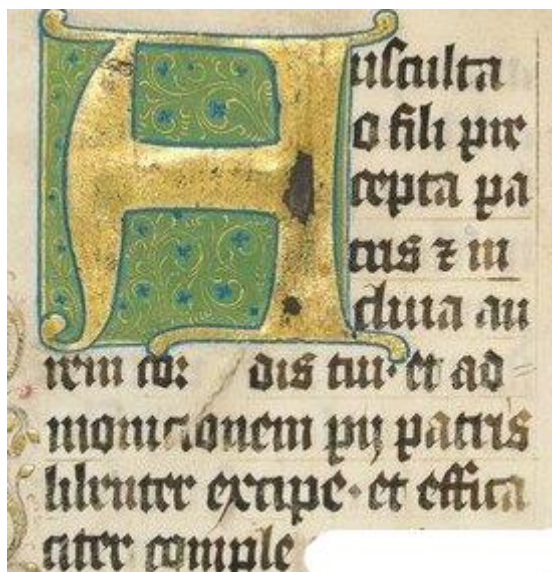 Ausculta
o fili pre
cepta pa
tris ⁊ in
clina au
rem cor dis tui · et ad=
monicionem pij patris
libenter excipe · et effica
citer comple